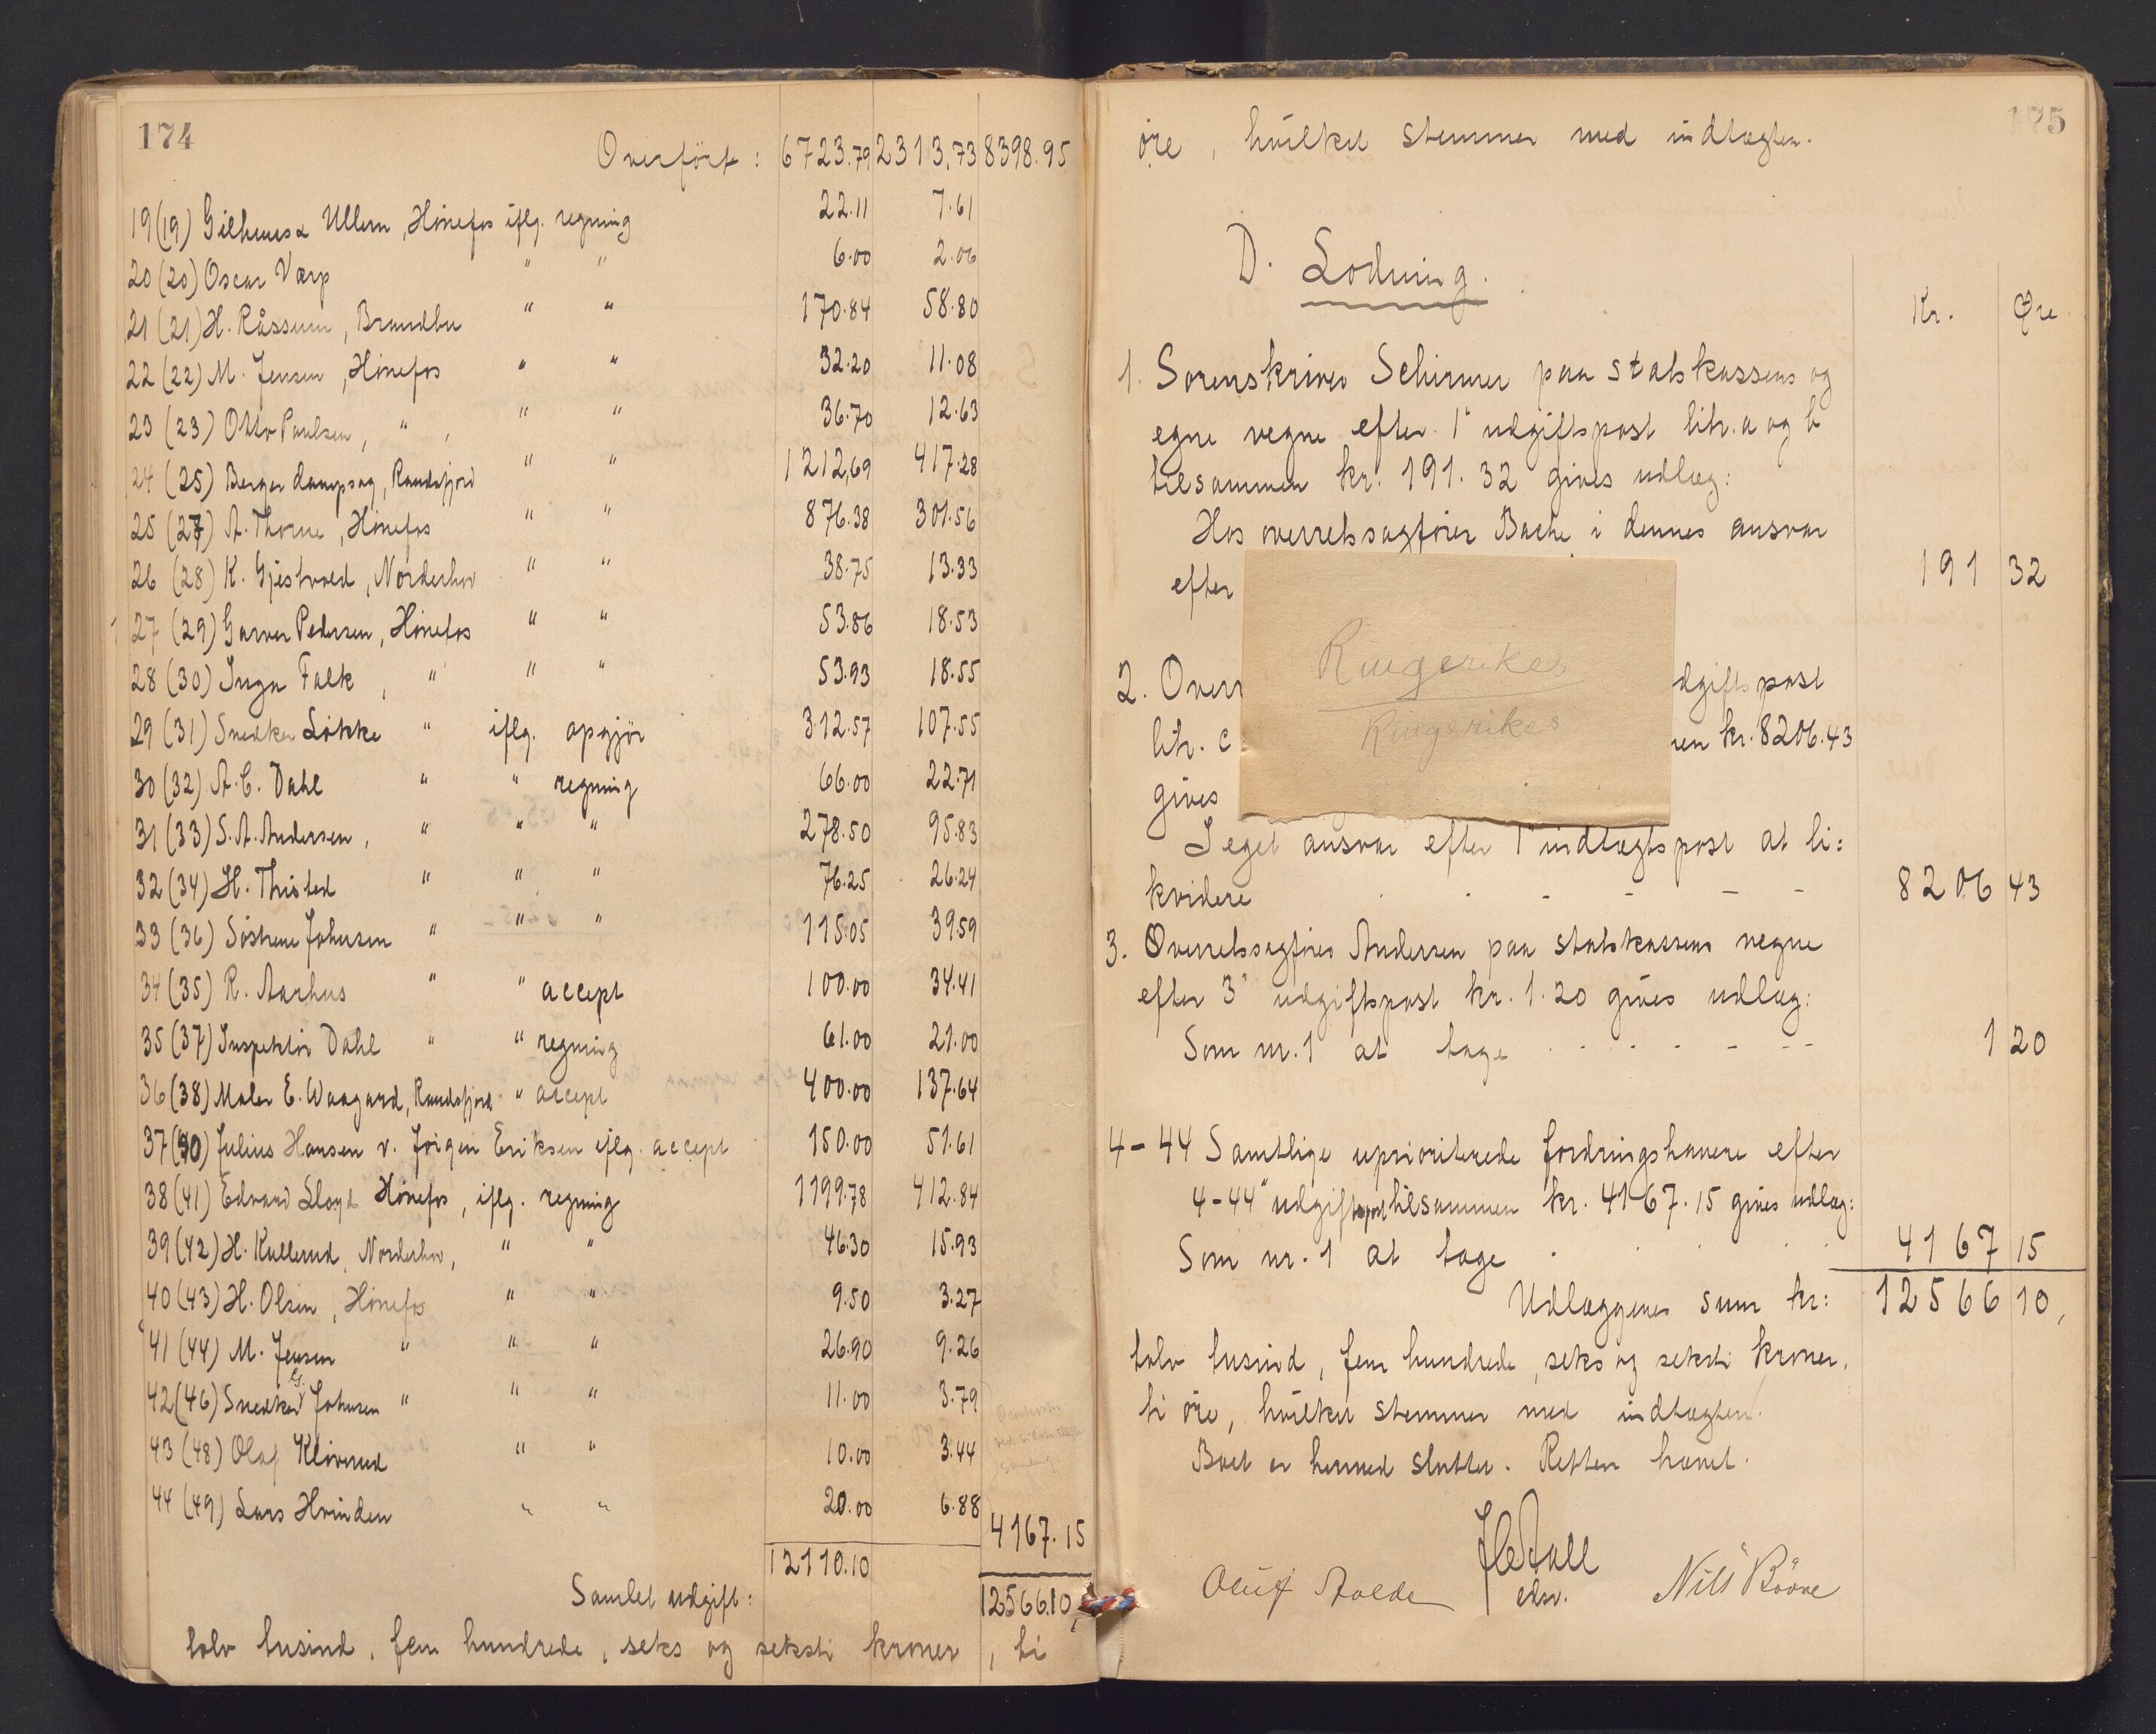 174
Overført: 6723.79 2313.73 8398.95
19 (19) Gilhuus & Ullern, Hønefos iflg. regning 22.11 7.61
20 (20) Oscar Værp " " 6.00 2.06
21 (21) H. Råssum, Brandbu " " 170.84 58.80
22 (22) M. Jensen, Hønefos " " 32.20 11.08
23 (23) Otto Paulsen, " , " " 36.70 12.63
24 (25) Berger dampsag, Randsfjord " " 1212,69 417.28
25 (27) A. Thorne, Hønefos " " 876.38 301.56
26 (28) K. Gjestvold, Norderhov " " 38.75 13.33
27 (29) Garver Pedersen, Hønefos " " 53.86 18.53
28 (30) Inga Falk, " " " 53.93 18.55
29 (31) Snedker Løkke " iflg. opgjør 312.57 107.55
30 (32) A. C. Dahl " " regning 66.00 22.71
31 (33) S. A. Andersen, " " " 278.50 95.83
32 (34) H. Thisted " " " 76.25 26.24
33 (36) Søstrene Johnsen " " " 115.05 39.59
34 (35) R. Aarhus " " accept 100.00 34.41
35 (37) Inspektør Dahl " " regning 61.00 21.00
36 (38) Maler E. Waagard, Randsfjord " accept 400.00 137.64
37 (40) Julius Hansen v. Jørgen Eriksen iflg. accept 150.00 51.61
38 (41) Edvard Lloyd Hønefos, iflg. regning 1199.78 412.84
39 (42) H. Kullerud, Norderhov, " " 46.30 15.93
40 (43) H. Olsen, Hønefos " " 9.50 3.27
41 (44) M. Jensen " " " 26.90 9.26
42 (46) Snedker G. Johnsen " " " 11.00 3.79
43 (48) Olaf Kløvrud " " 10.00 3.44
44 (49) Lars Hvinden " " 20.00 6.88
4167.15
12110.10
Samlet udgift: 12566.10,
tolv tusind, fem hundrede, seks og seksti kroner, ti
175
øre, hvilket stemmer med indtægten.
D. Lodning.
Kr. Øre.
1. Sorenskriver Schirmer paa statskassens og
egne vegne efter 1" udgiftspost litr. a og b
tilsammen kr. 191.32 gives udlæg:
Hos overretssagfører Bache i dennes ansvar
efter 191 32
Ringerikes
Ringerikes
2. Overr dgiftspost
litr. c en kr. 8206.43
gives
I eget ansvar efter 1" indtægtspost at li=
kvidere - - - - - 8206 43
3. Overretssagfører Andersen paa statskassens vegne
efter 3" udgiftspost kr. 1.20 gives udlæg:
Som nr. 1 at tage - - - - - - 1 20
4-44 Samtlige uprioriterede fordringshavere efter
4-44" udgiftspost tilsammen kr. 4167.15 gives udlæg:
Som nr. 1 at tage . . . . . 4167 15
Udlæggenes sum kr: 12566 10,
tolv tusind, fem hundrede, seks og seksti kroner,
ti øre, hvilket stemmer med indtægten.
Boet er hermed sluttet. Retten hævet.
edsv.